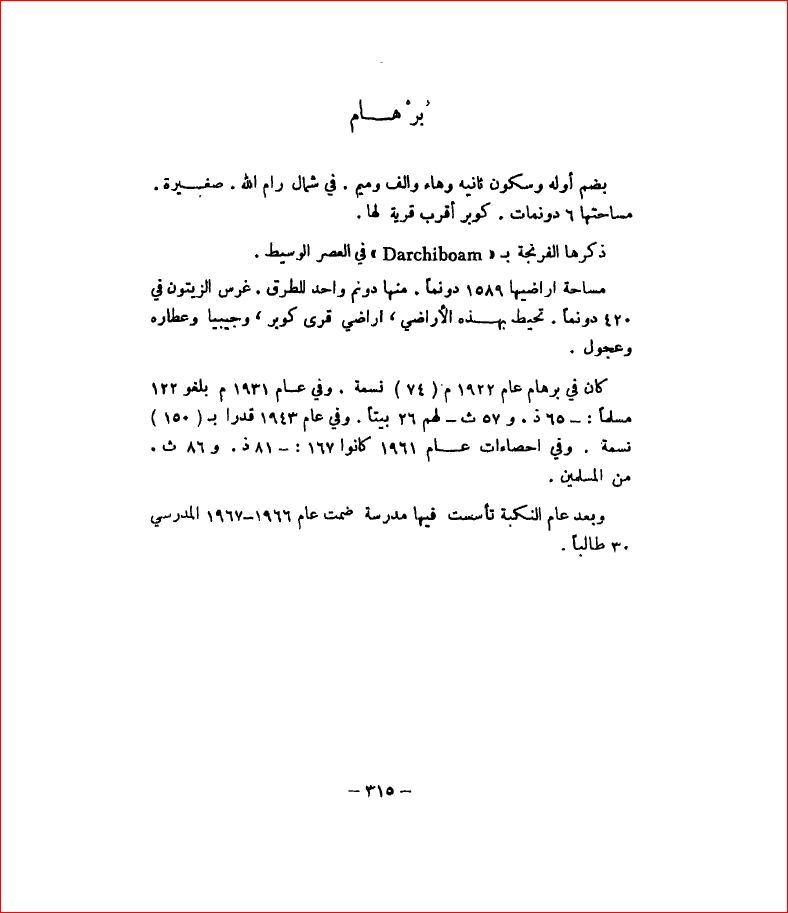 بُرْهــام
بضم أوله وسكون ثانيه وهاء والف وميم . في شمال رام الله . صغيرة .
مساحتها ٦ دونمات . كوبر أقرب قرية لها .
ذكرها الفرنجة بـ « Darchiboam » في العصر الوسيط .
مساحة اراضيها ١٥٨٩ دونماً . منها دونم واحد للطرق . غرس الزيتون في
٤٢٠ دونماً . تحيط بهــذه الأراضي ، اراضي قرى كوبر ، وجيبيا وعطاره
وعجول .
كان في برهام عام ١٩٢٢ م ( ٧٤ ) نسمة . وفي عـام ١٩٣١ م بلغو ١٢٢
مسلماً : ـ ٦٥ ذ . و ٥٧ ث ـ لهم ٢٦ بيتاً . وفي عام ١٩٤٣ قدرا بـ ( ١٥٠ )
نسمة . وفي احصاءات عــام ١٩٦١ كانوا ١٦٧ : ـ ٨١ ذ . و ٨٦ ث .
من المسلمين .
وبعد عام النكبة تأسست فيها مدرسة ضمت عام ١٩٦٦ـ١٩٦٧ المدرسي
٣٠ طالباً .
– ٣١٥ –